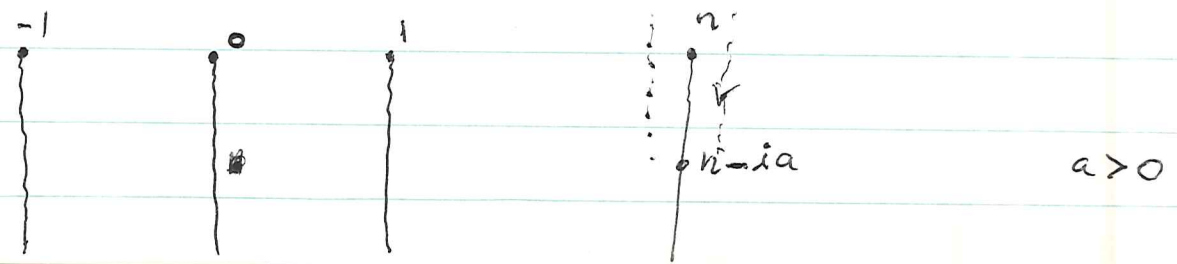 -1 0 1 n
n-ia a>0